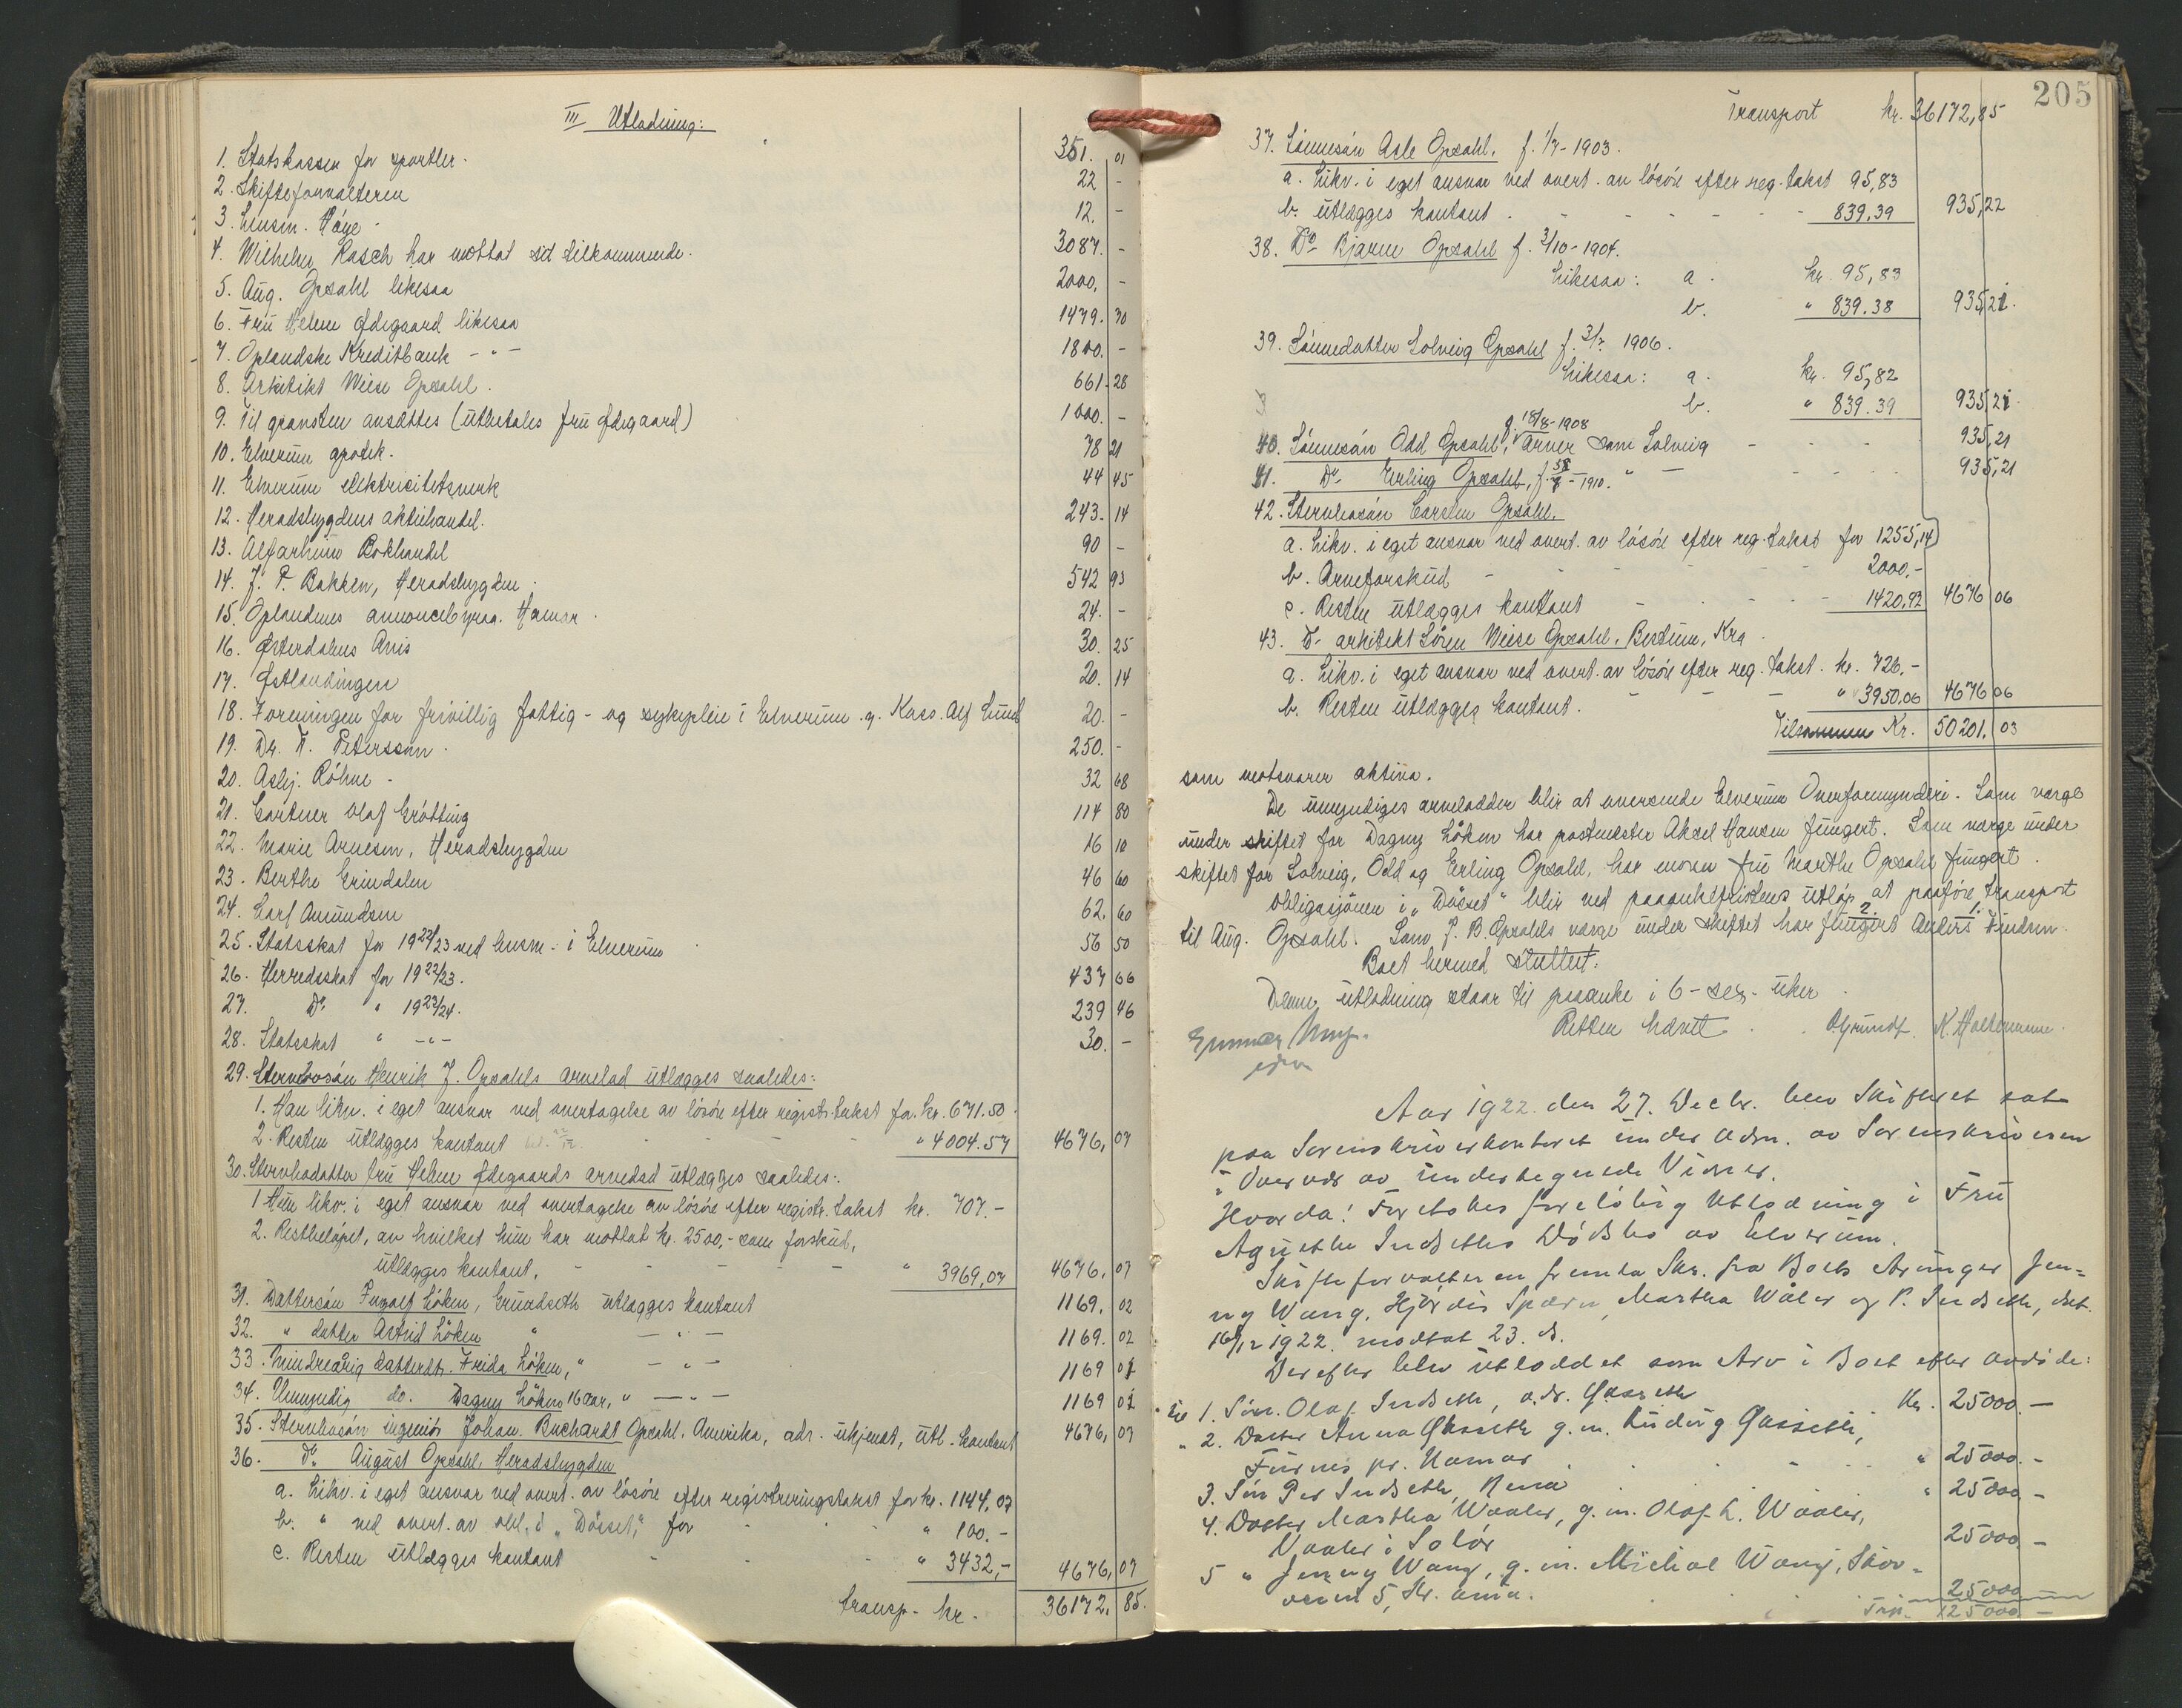 III Utlodning:
1. Statskassen for sportler. 351. 01
2. Skifteforvalteren 22 -
3. Lensm. Høye - 12. -
4. Wilhelm Rasch har mottat sit tilkommende. 3087. -
5. Aug. Opsahl likesaa 2000. -
6. Fru Helene Ødegaard likesaa 1479. 30
7. Oplandske Kreditbank - " - 1800. -
8. Arkitekt Wiese Opsahl. 661. 28
9. Til gravsten avsættes (utbetales fru Ødegaard) 1000. -
10. Elverum apotek. 78 21
11. Elverum elektricitetsverk 44 45
12. Heradsbygdens aktiehandel. 243. 14
13. Alfarheim Bokhandel 90 -
14. J. T. Bakken, Heradsbygden. 542 93
15. Oplandenes annoncebyraa. Hamar. 24. -
16. Østerdalens Avis 30. 25
17. Østlendingen 20. 14
18. Foreningen for frivillig fattig- og sykepleie i Elverum. g. Kass. Alf Lund 20. -
19. Dr. N. Peterssøn. 250. -
20. Asbj. Röhne - 32 68
21. Gartner Olaf Gröttting 114 80
22. Marie Arnesen, Heradsbygden 16 10
23. Berthe Grindalen 46 60
24. Carl Amundsen 62. 60
25. Statsskat for 1922/23 ved lensm. i Elverum 56 50
26. Herredsskat for 1922/23. 437 66
27. Do " 1923/24. 239 46
28. Statsskat " - " - 30. -
29. Stervbosøn Henrik J. Opsahls arvelod utlægges saaledes:
1. Han likv. i eget ansvar ved overtagelse av løsøre efter registr. takst for kr. 671.50.
2. Resten utlægges kontant " 4004.57 4676, 07
30. Stervbodatter fru Helene Ødegaards arvelod utlægges saaledes:
1 Hun likv. i eget ansvar ved overtagelse av løsøre efter registr. takst kr. 707.-
2. Restbeløpet, av hvilket hun har mottat kr. 2500,- som forskud,
utlægges kontant. " 3969,07 4676, 07
31. Dattersøn Ingolf Løken, Grundseth utlægges kontant 1169. 02
32. " datter Astrid Løken " - " - 1169. 02
33. Mindreårig datterdtr. Frida Løken, " - " - 1169 01
34. Umyndig do. Dagny Løken 16 aar, " - " - 1169 01
35. Stervbosøn ingeniör Johan Buchardt Opsahl, Amerika, adr. ukjendt, utl. kontant 4676, 07
36. Do August Opsahl, Heradsbygden
a. Likv. i eget ansvar ved overt. av løsøre efter registreringstakst for kr. 1144, 07
b. " ved overt. av obl. i "Døset," for " 100.-
c. Resten utlægges kontant " 3432,- 4676, 07
transp. kr. 36172, 85.
205
Transport kr. 36172,85
37. Sønnesøn Asle Opsahl, f. 1/7-1903.
a. Likv. i eget ansvar ved overt. av løsøre efter reg. takst 95,83
b. utlægges kontant. 839.39 935,22
38. Do Bjarne Opsahl f. 3/10-1904.
Likesaa: a. kr. 95,83
b. " 839.38 935,21.
39. Sønnedatter Solveig Opsahl f. 3/7 1906.
Likesaa: a. kr. 95,82
b. " 839.39 935,21.
f. 18/8-1908
40. Sønnesøn Odd Opsahl, arver som Solveig - 935,21
41. Do Erling Opsahl, f. 1910. " - 935,21
42. Stervbosøn Carsten Opsahl.
a. Likv. i eget ansvar ved overt. av løsøre efter reg. takst for 1255,14
b. Arveforskud - 2000,-
c. Resten utlægges kontant 1420,92 4676 06
43. Do arkitekt Sören Wiese Opsahl, Bestum, Kra.
a. Likv. i eget ansvar ved overt. av løsøre efter reg. takst. kr. 726,-
b. Resten utlægges kontant. " 3950,06 4676 06
Tilsammen Kr. 50201, 03
som motsvarer aktiva.
De umyndiges arvelodder blir at oversende Elverum Overformynderi. Som verge
under skiftet for Dagny Løken har postmester Aksel Hansen fungert. Som verge under
skiftet for Solveig, Odd og Erling Opsahl, har moren fru Marthe Opsahl fungert.
Obligasjonen i "Døset" blir ved paaankefristens utløp at paaføre transport
til Aug. Opsahl. Som J. B. Opsahls verge under skiftet har fungert Anders Findsen.
Boet hermed sluttet.
Denne utlodning staar til paaanke i 6-sex-uker.
Retten hævet. O. Grundt. K. Haltermann.
Aar 1922 den 27. Decbr. blev Skifteret sat
paa Sorenskriverkontoret under adm. av Sorenskriveren
i Overvær av undertegnede Vidner.
Hvorda: Foretokes foreløbig Utlodning i Fru
Agnethe Indseths Dødsbo av Elverum.
Skifteforvalteren fremla Skr. fra Boets Arvinger Jen=
ny Wang, Hjørdis Spærn, Martha Wåler og P. Indseth, dat.
16/12 1922 modtat 23. ds.
Derefter blev utloddet som Arv i Boet efter avdøde:
til 1. Søn Olaf Indseth, adr. Gaaseth Kr. 25000.-
" 2. Datter Anna Gaaseth g. m. Ludvig Gaaseth,
Furnes pr. Hamar " 25000.-
3. Søn Per Indseth, Rena " 25000.-
4. Datter Martha Waaler, g. m. Olaf L. Waaler,
Vaaler i Solør 25000.-
5 " Jenny Wang, g. m. Michael Wang, Skov=
veien 5, Kr.ania. 25000
Trp. 125000 -